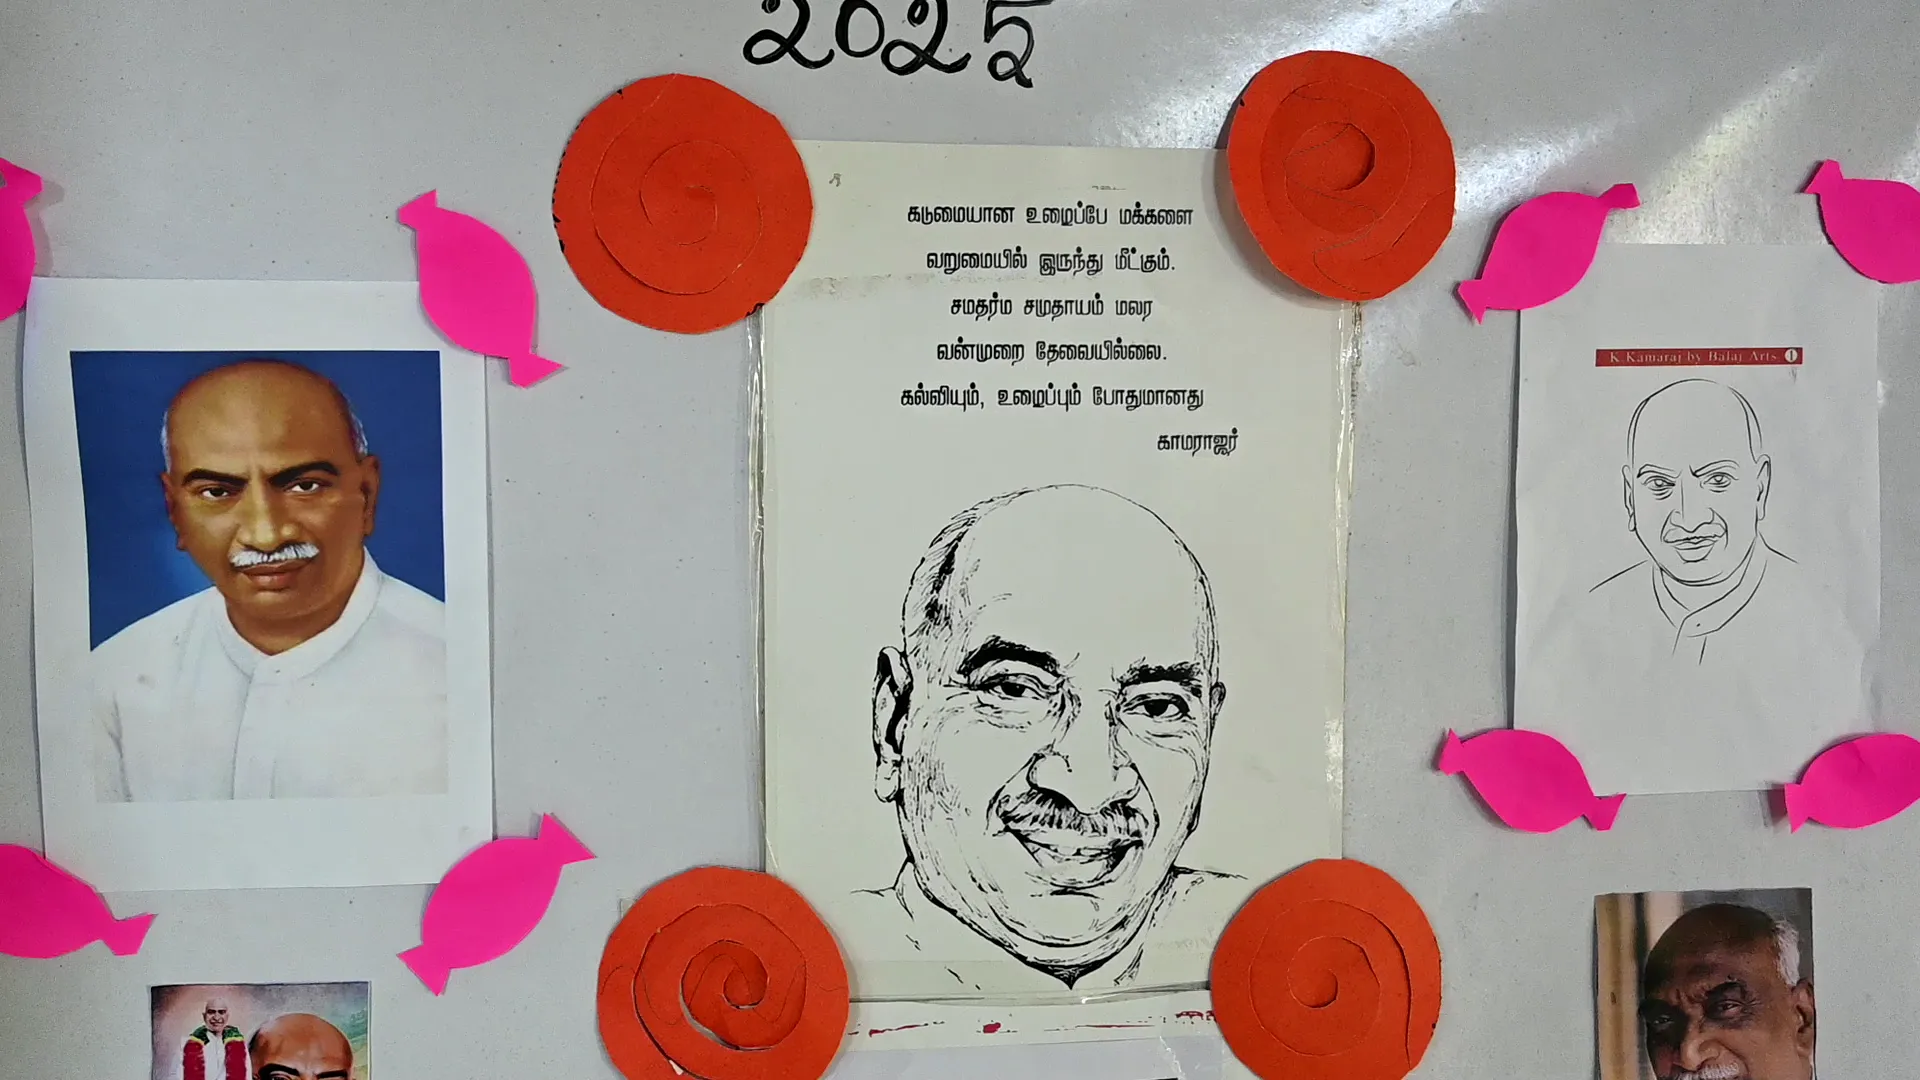 2025
கடுமையான உழைப்பே மக்களை
வறுமையில் இருந்து மீட்கும்.
சமதர்ம சமுதாயம் மலர
வன்முறை தேவையில்லை.
கல்வியும், உழைப்பும் போதுமானது
காமராஜர்
K.Kamaraj by Balaj Arts 1